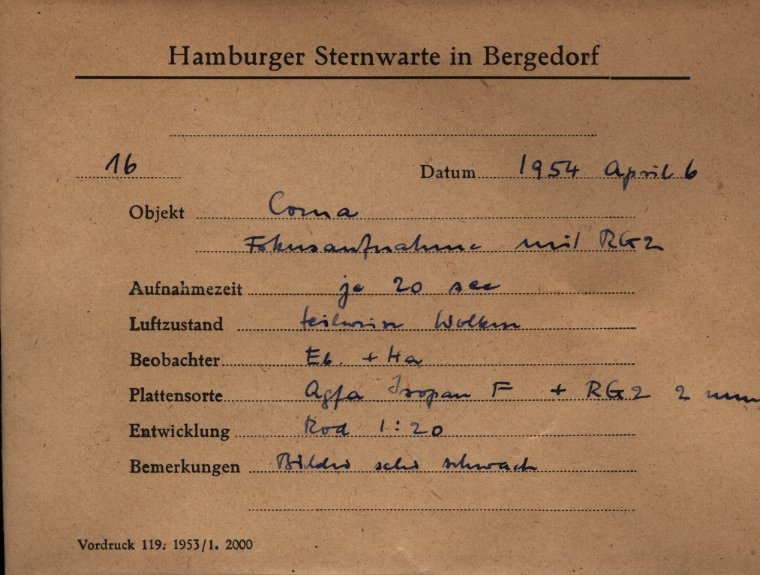 Hamburger Sternwarte in Bergedorf
16 Datum 1954 April 6
Objekt Coma
Fokusaufnahme mit RG2
Aufnahmezeit je 20 sec
Luftzustand teilweise Wolken
Beobachter Eb. + Ha
Plattensorte Agfa Isopan F + RG2 2 mm
Entwicklung Rod 1:20
Bemerkungen Bilder sehr schwach
Vordruck 119: 1953/1. 2000